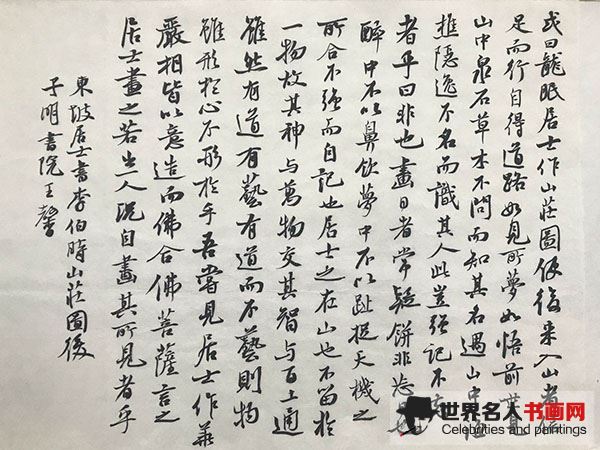 或曰龍眠居士作山莊圖使後来入山者信
足而行自得道路如見所夢如悟前世見
山中泉石草木不問而知其名遇山中漁
樵隱逸不名而識其人此豈强記不
者乎曰非也畫日者常疑餅非忘
醉中不以鼻飲夢中不以趾捉天機之
所合不强而自記也居士之在山也不留於
一物故其神與萬物交其智與百工通
雖然有道有藝有道而不藝則物
雖形於心不形於手吾嘗見居士作華
嚴相皆以意造而佛合佛菩薩言之
居士畫之若出一人況自畫其所見者乎
東坡居士書李伯時山莊圖後
子明書院王馨
世界名人书画网
Celebrities and paintings